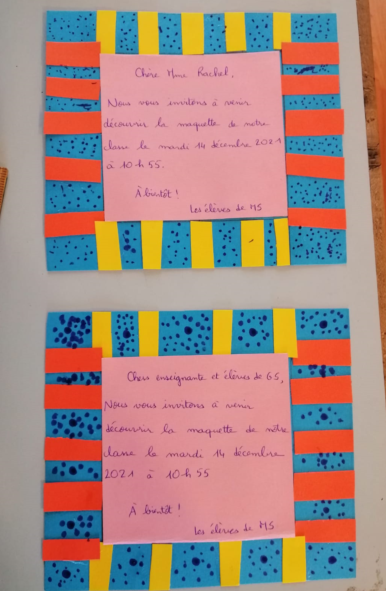 Chère Mme Rachel,
Nous vous invitons à venir
découvrir la maquette de notre
classe le mardi 14 décembre 2021
à 10 h 55.
À bientôt !
Les élèves de MS
Chers enseignante et élèves de GS,
Nous vous invitons à venir
découvrir la maquette de notre
classe le mardi 14 décembre
2021 à 10 h 55
À bientôt !
Les élèves de MS